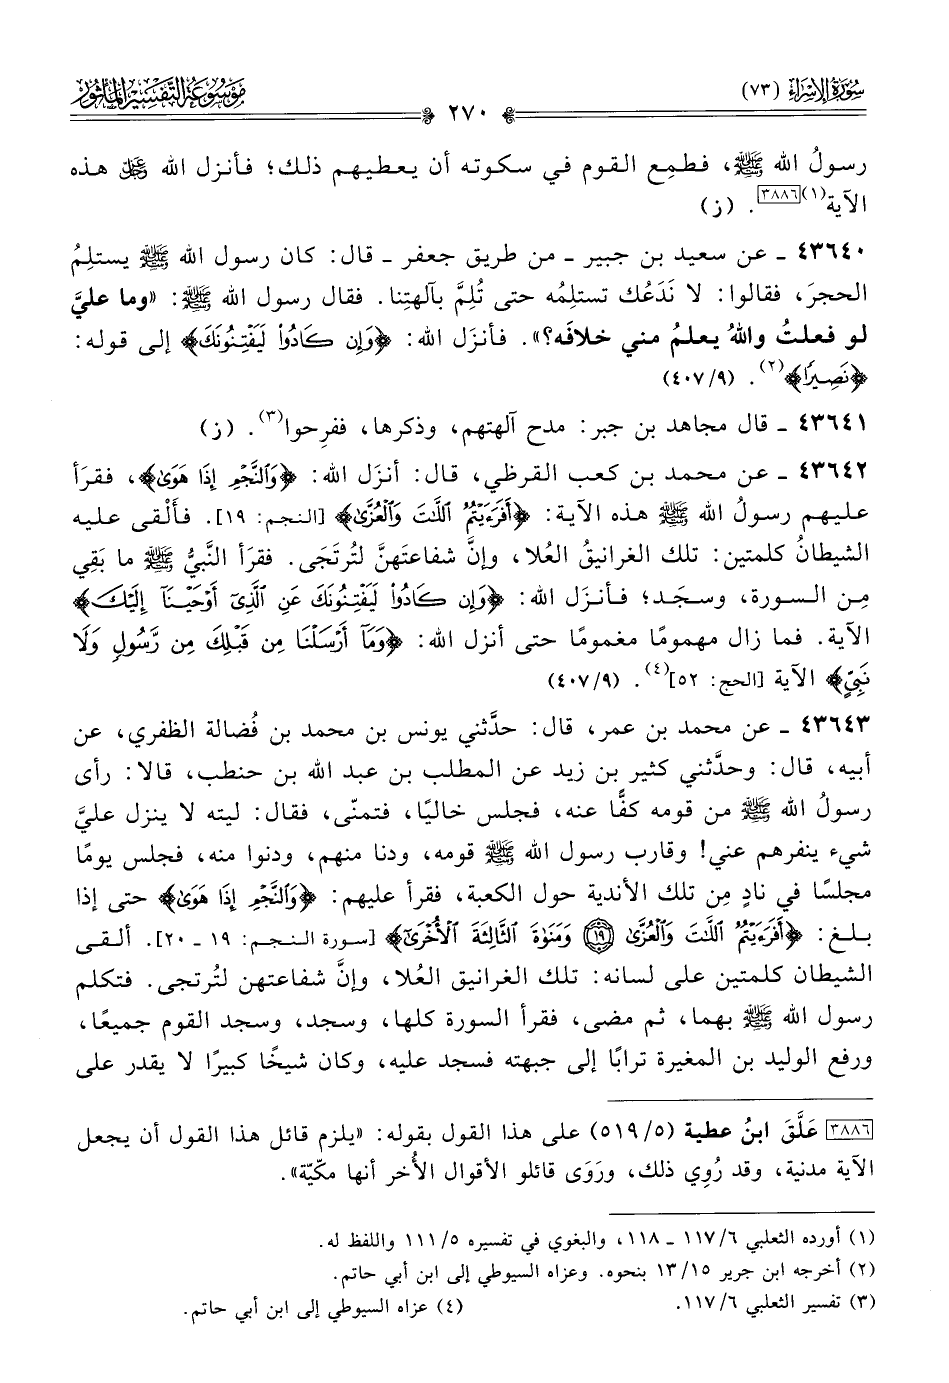 سورة الإسراء (٧٣)
٢٧٠
موسوعة التفسير المأثور
رسولُ الله ﷺ، فطمِع القوم في سكوته أن يعطيهم ذلك؛ فأنزل الله ﷿ هذه
الآية(١)[٣٨٨٦]. (ز)
٤٣٦٤٠ ـ عن سعيد بن جبير ـ من طريق جعفر ـ قال: كان رسول الله ﷺ يستلِمُ
الحجرَ، فقالوا: لا نَدَعُك تستلِمُه حتى تُلِمَّ بآلهتِنا. فقال رسول الله ﷺ: «وما عليَّ
لو فعلتُ واللهُ يعلمُ مني خلافَه؟». فأنزَل الله: ﴿وَإِن كَادُواْ لَيَفْتِنُونَكَ﴾ إلى قوله:
﴿نَصِيرًا﴾(٢). (٤٠٧/٩)
٤٣٦٤١ ـ قال مجاهد بن جبر: مدح آلهتهم، وذكرها، ففرِحوا(٣). (ز)
٤٣٦٤٢ ـ عن محمد بن كعب القرظي، قال: أنزَل الله: ﴿وَٱلنَّجْمِ إِذَا هَوَىٰ﴾، فقرَأ
عليهم رسولُ الله ﷺ هذه الآية: ﴿أَفَرَءَيْتُمُ ٱللَّٰتَ وَٱلْعُزَّىٰ﴾ [النجم: ١٩]. فأَلْقى عليه
الشيطانُ كلمتين: تلك الغرانيقُ العُلا، وإنَّ شفاعتَهنَّ لتُرتَجَى. فقرَأ النَّبيُّ ﷺ ما بَقِي
مِن السورة، وسجَد؛ فأنزَل الله: ﴿وَإِن كَادُواْ لَيَفْتِنُونَكَ عَنِ ٱلَّذِىٓ أَوْحَيْنَآ إِلَيْكَ﴾
الآية. فما زال مهمومًا مغمومًا حتى أنزل الله: ﴿وَمَآ أَرْسَلْنَا مِن قَبْلِكَ مِن رَّسُولٍ وَلَا
نَبِىٍّ﴾ الآية [الحج: ٥٢](٤). (٤٠٧/٩)
٤٣٦٤٣ ـ عن محمد بن عمر، قال: حدَّثني يونس بن محمد بن فُضالة الظفري، عن
أبيه، قال: وحدَّثني كثير بن زيد عن المطلب بن عبد الله بن حنطب، قالا: رأى
رسولُ الله ﷺ من قومه كفًّا عنه، فجلس خاليًا، فتمنّى، فقال: ليته لا ينزل عليَّ
شيء ينفرهم عني! وقارب رسول الله ﷺ قومه، ودنا منهم، ودنوا منه، فجلس يومًا
مجلسًا في نادٍ مِن تلك الأندية حول الكعبة، فقرأ عليهم: ﴿وَٱلنَّجْمِ إِذَا هَوَىٰ﴾ حتى إذا
بلغ: ﴿أَفَرَءَيْتُمُ ٱللَّٰتَ وَٱلْعُزَّىٰ ﴿١٩﴾ وَمَنَوٰةَ ٱلثَّالِثَةَ ٱلْأُخْرَىٰٓ﴾ [سورة النجم: ١٩ ـ ٢٠]. ألقى
الشيطان كلمتين على لسانه: تلك الغرانيق العُلا، وإنَّ شفاعتهن لتُرتجى. فتكلم
رسول الله ﷺ بهما، ثم مضى، فقرأ السورة كلها، وسجد، وسجد القوم جميعًا،
ورفع الوليد بن المغيرة ترابًا إلى جبهته فسجد عليه، وكان شيخًا كبيرًا لا يقدر على
[٣٨٨٦] عَلَّقَ ابنُ عطية (٥١٩/٥) على هذا القول بقوله: «يلزم قائل هذا القول أن يجعل
الآية مدنية، وقد رُوِي ذلك، ورَوَى قائلو الأقوال الأُخر أنها مكيّة».
(١) أورده الثعلبي ١١٧/٦ ـ ١١٨، والبغوي في تفسيره ١١١/٥ واللفظ له.
(٢) أخرجه ابن جرير ١٣/١٥ بنحوه. وعزاه السيوطي إلى ابن أبي حاتم.
(٣) تفسير الثعلبي ١١٧/٦. (٤) عزاه السيوطي إلى ابن أبي حاتم.